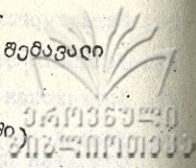 შემავალი
ეროვნული
ში)
ბიბლიოთეკა